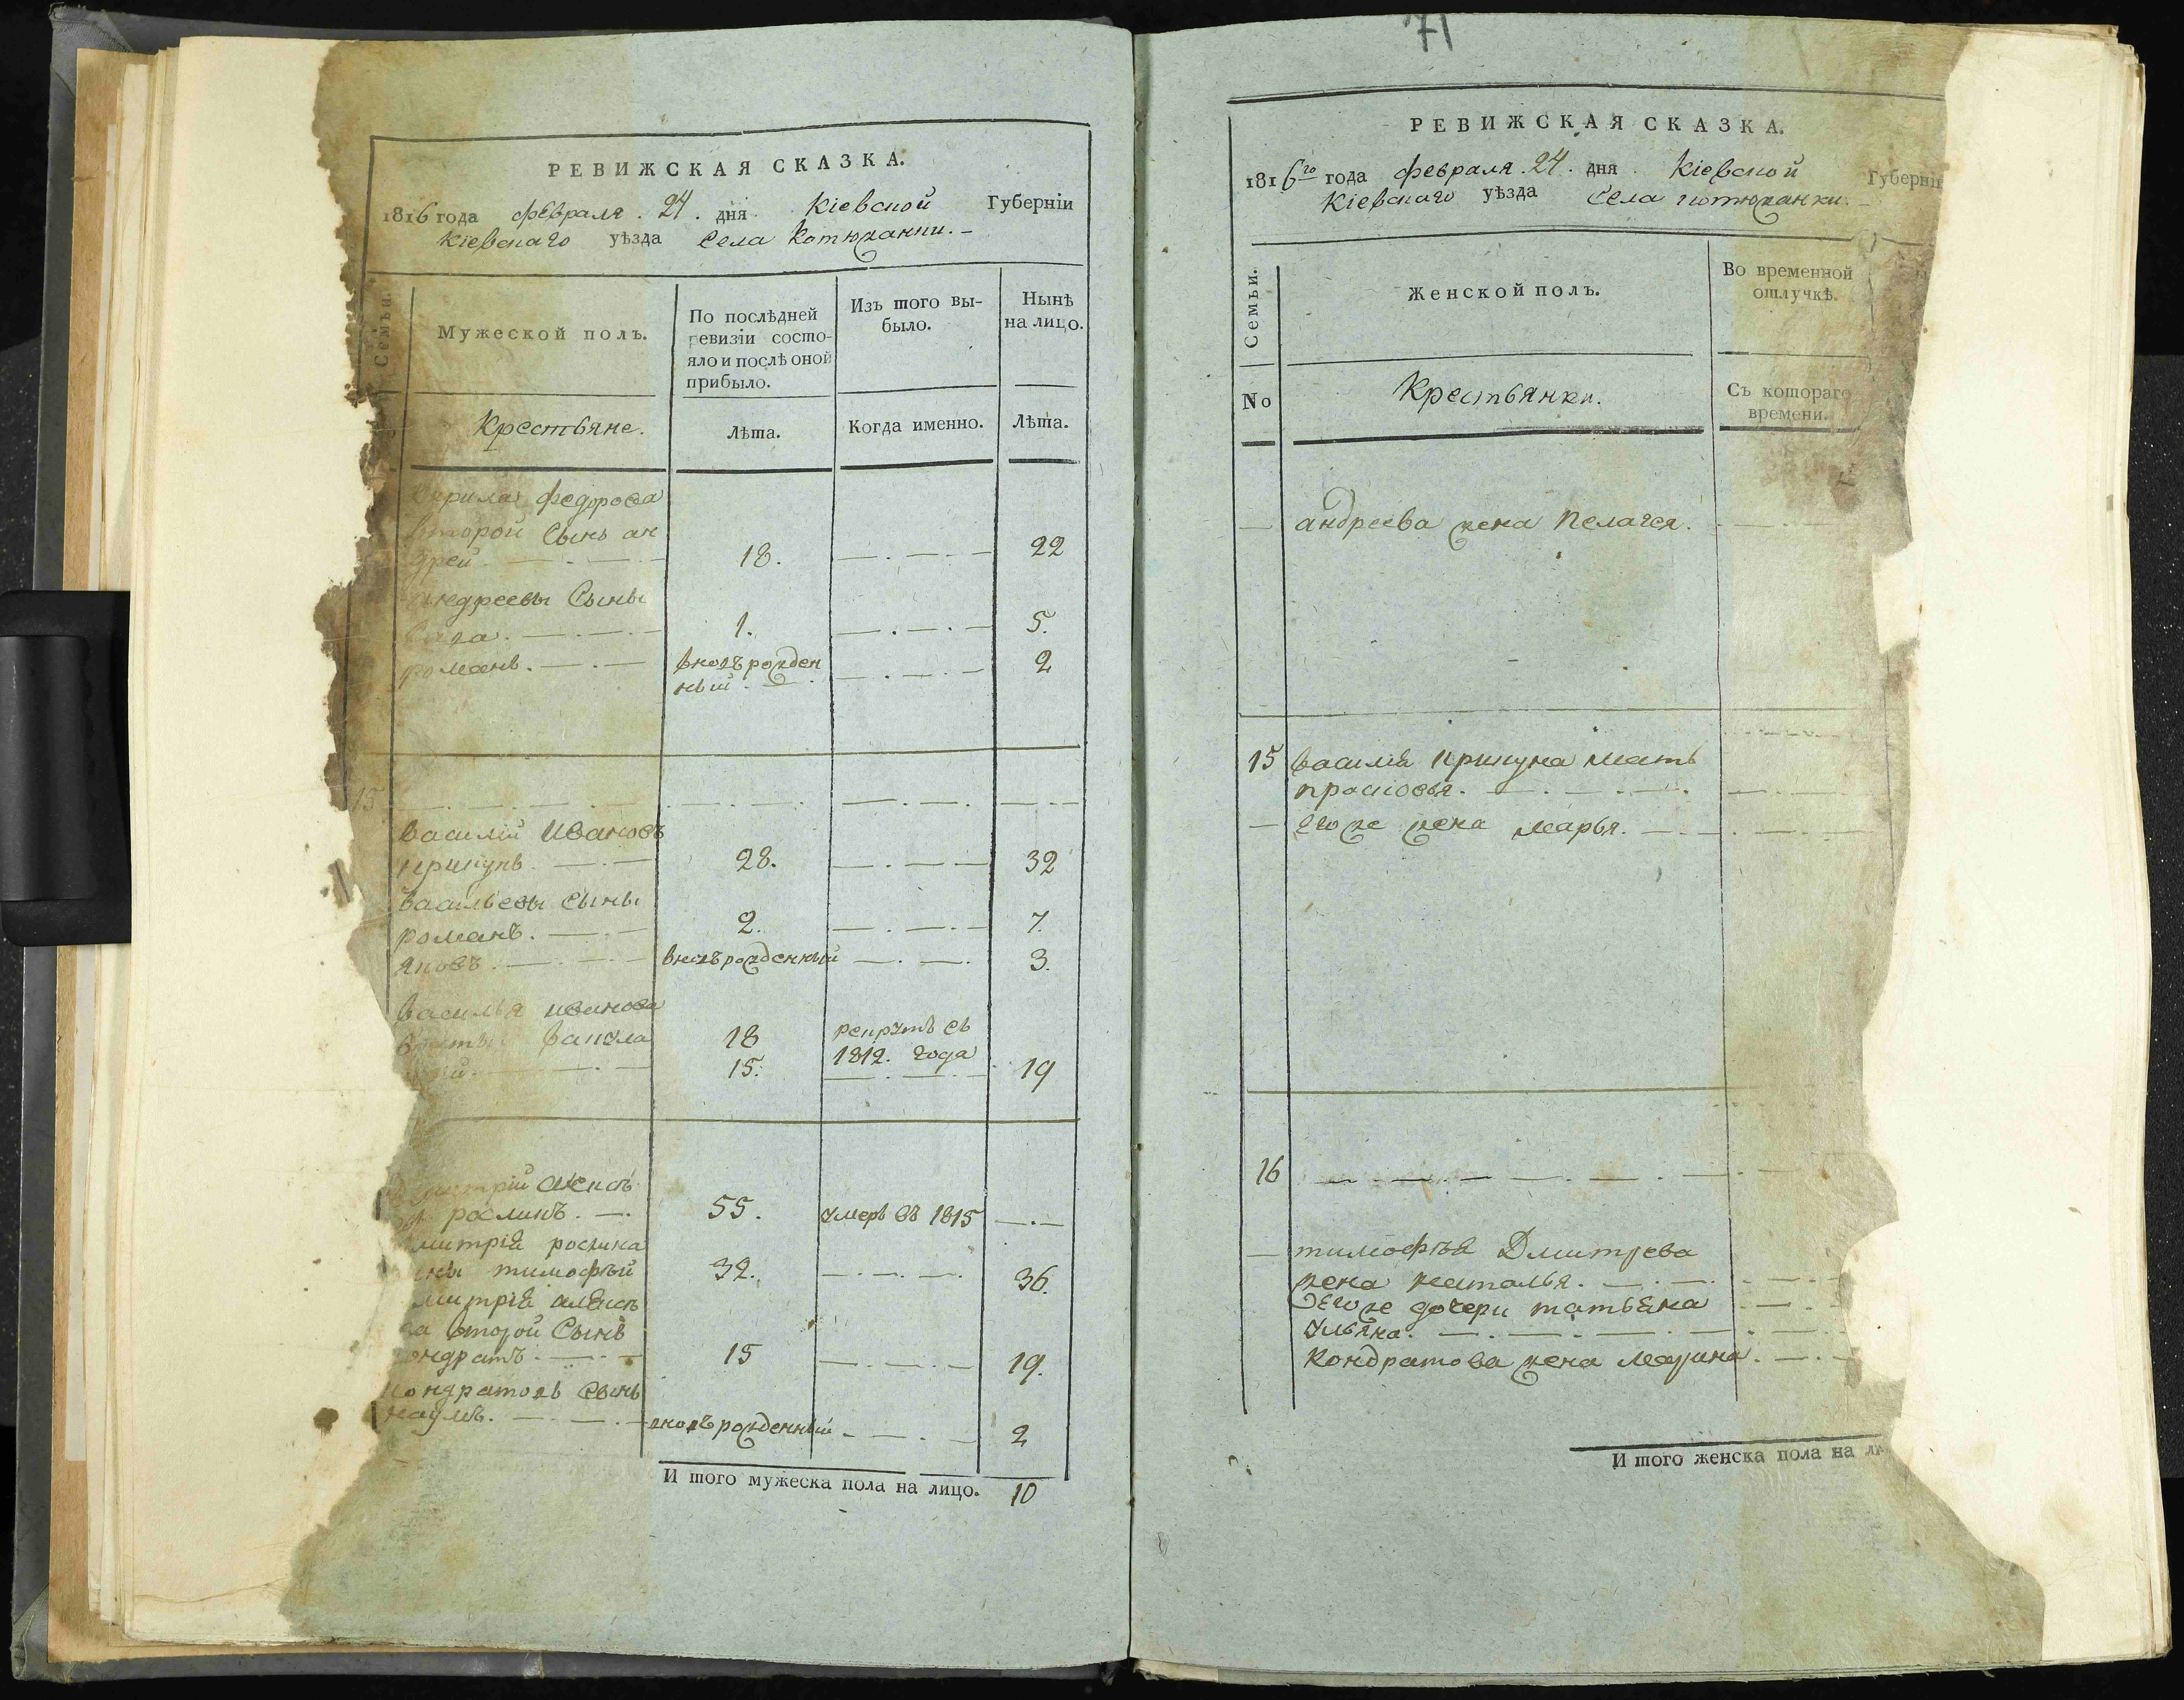 РЕВИЖСКАЯ СКАЗКА.
1816 года февраля. 24. дня Кіевской Губерніи
Кіевскаго уѣзда Села Котюжанки.
Семьи.
Мужеской полъ.
По послѣдней ревизіи состо-
яло и послѣ оной
прибыло.
Изъ того вы-
было.
Нынѣ
на лицо.
Крестьяне.
Лѣта.
Когда именно.
Лѣта.
федорова
второй Сынъ ан
дрей 18. 22
андреевы Сыны
1. 5.
романъ. вновь рожден 2
ный
15
василій Ивановъ
28. 32
васильевы сыны
романъ. 2. 7.
яковъ. вновь рожденный 3.
василья иванова
вакула 18 рекрутъ съ
15. 1812. года 19
рослинъ. 55. умеръ въ 1815
митрія рослина
тимофѣй 32. 36.
митрія
второй Сынъ
ондратъ 15 19.
кондратовъ сынъ
наумъ. вновь рожденный 2
И того мужеска пола на лицо. 10
71
РЕВИЖСКАЯ СКАЗКА.
1816го года февраля. 24. дня Кіевской Губерніи
Кіевскаго уѣзда Села котюжанки.
Семьи.
Женской полъ.
Во временной
отлучкѣ.
No
Крестьянки.
Съ котораго
времени.
андреева жена Пелагея.
15 василія мать
прасковья.
его же жена марья.
16
тимофѣя Дмитрева
жена наталья.
Его же дочери татьяна
ульяна.
Кондратова жена марина.
И того женска пола на